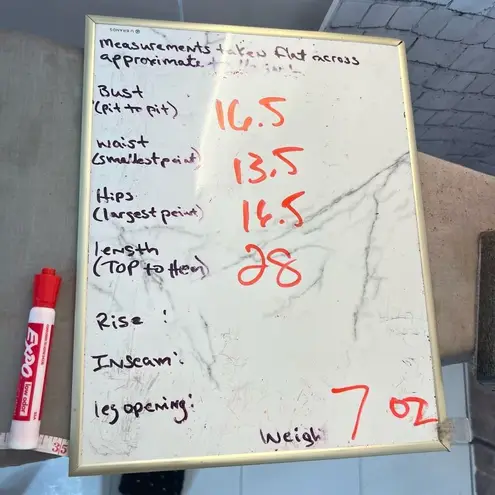 measurements taken flat across
approximate to the inch
Bust
(pit to pit) 16.5
waist
(smallest point) 13.5
Hips
(largest point) 16.5
length
(TOP to Hem) 28
Rise :
Inseam:
leg opening:
Weigh 7 oz
EXPO
35